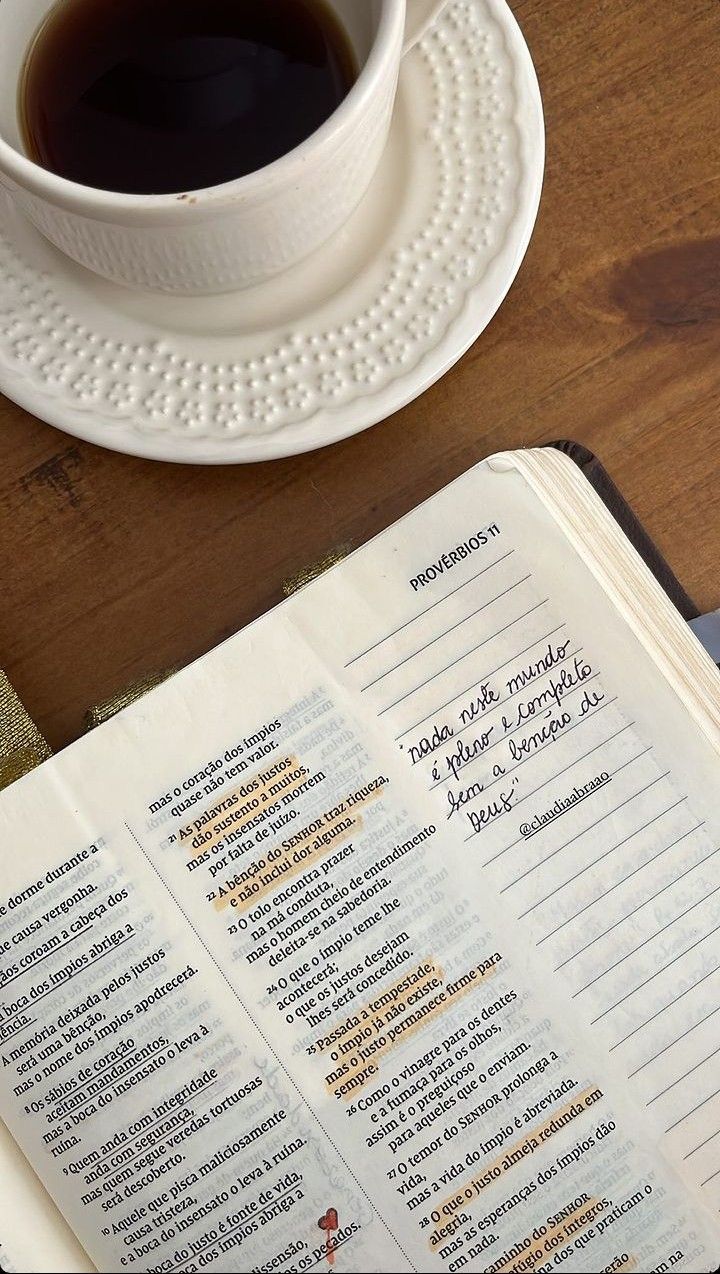 PROVÉRBIOS 11
"nada neste mundo
é pleno e completo
sem a benção de
Deus."
@claudiaabraao
dorme durante a
que causa vergonha.
coroam a cabeça dos
boca dos ímpios abriga a
A memória deixada pelos justos
será uma bênção,
mas o nome dos ímpios apodrecerá.
8 Os sábios de coração
aceitam mandamentos,
mas a boca do insensato o leva à
ruína.
9 Quem anda com integridade
anda com segurança,
mas quem segue veredas tortuosas
será descoberto.
10 Aquele que pisca maliciosamente
causa tristeza,
e a boca do insensato o leva à ruína.
boca do justo é fonte de vida,
boca dos ímpios abriga a
dissensão,
os pecados.
mas o coração dos ímpios
quase não tem valor.
21 As palavras dos justos
dão sustento a muitos,
mas os insensatos morrem
por falta de juízo.
22 A bênção do SENHOR traz riqueza,
e não inclui dor alguma.
23 O tolo encontra prazer
na má conduta,
mas o homem cheio de entendimento
deleita-se na sabedoria.
24 O que o ímpio teme lhe
acontecerá;
o que os justos desejam
lhes será concedido.
25 Passada a tempestade,
o ímpio já não existe,
mas o justo permanece firme para
sempre.
26 Como o vinagre para os dentes
e a fumaça para os olhos,
assim é o preguiçoso
para aqueles que o enviam.
27 O temor do SENHOR prolonga a
vida,
mas a vida do ímpio é abreviada.
28 O que o justo almeja redunda em
alegria,
mas as esperanças dos ímpios dão
em nada.
caminho do SENHOR
refúgio dos íntegros,
na dos que praticam o